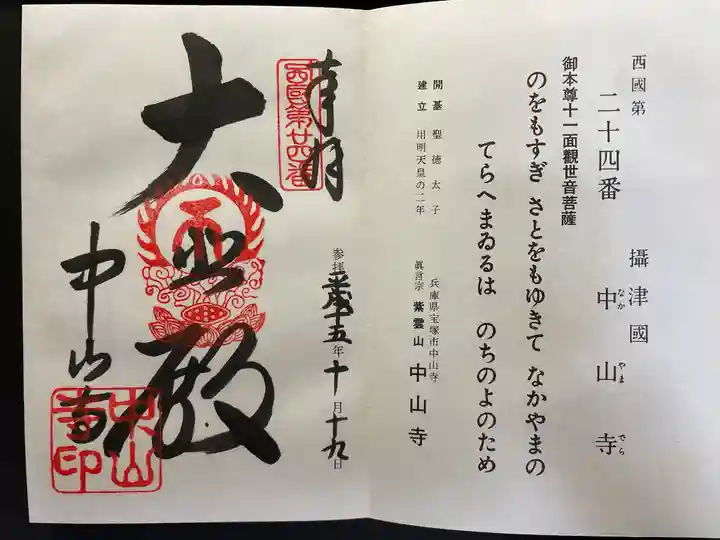 西國第
二十四番
攝津國
中山寺
なか やま でら
御本尊十一面觀世音菩薩
のをもすぎ さとをもゆきて なかやまの
てらへまゐるは のちのよのため
開基 聖徳太子
建立 用明天皇の二年
兵庫県宝塚市中山寺
眞言宗 紫雲山 中山寺
奉拝
西国第廿四番
大悲殿
中山寺
中山寺印
参拝 年十月十九日